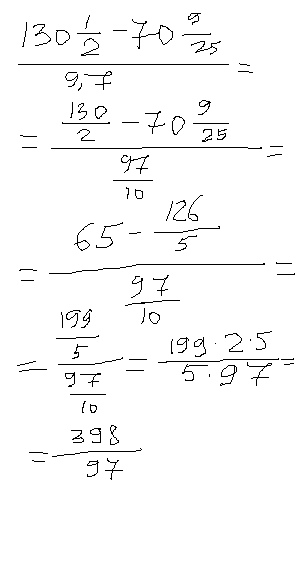 (130 1/2 - 70 9/25) / 9,7 =
= (130/2 - 70 9/25) / (97/10) =
= (65 - 126/5) / (97/10) =
= (199/5) / (97/10) = (199·2·5) / (5·97) =
= 398/97